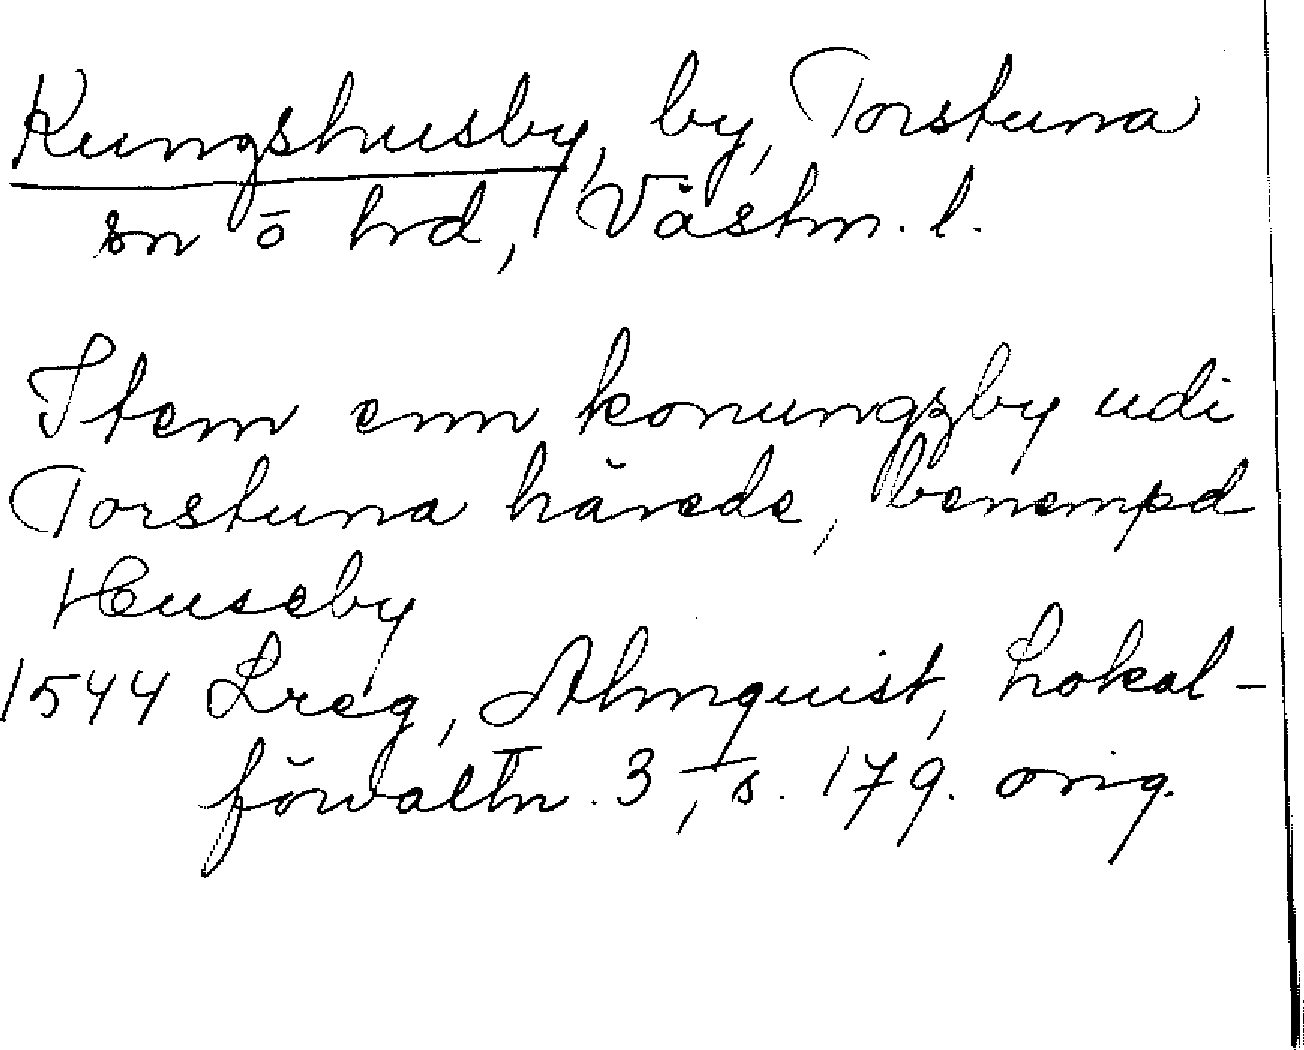 Kungshusby, by, Torstuna
sn o hrd, Västm. l.
Item enn konungzby udi
Torstuna härede, benempd
Huseby
1544 Lreg, Almquist, Lokal-
förvaltn. 3, s. 179. orig.